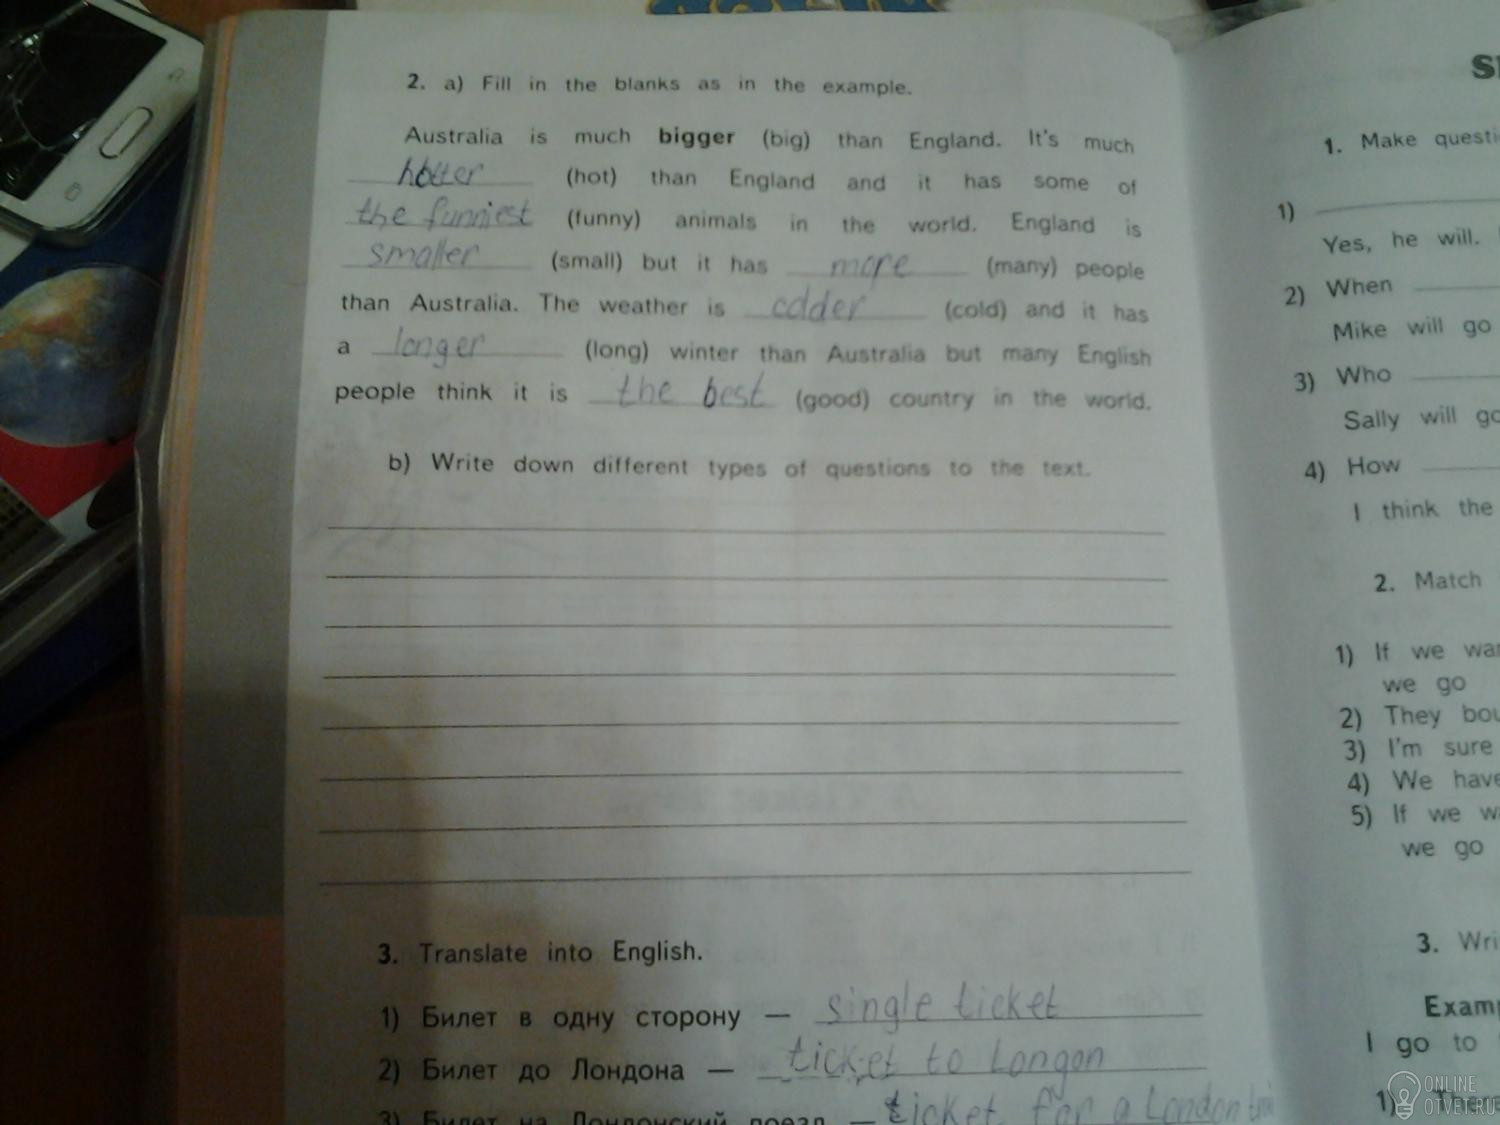 2. a) Fill in the blanks as in the example.
Australia is much bigger (big) than England. It's much
hotter (hot) than England and it has some of
the funniest (funny) animals in the world. England is
smaller (small) but it has more (many) people
than Australia. The weather is colder (cold) and it has
a longer (long) winter than Australia but many English
people think it is the best (good) country in the world.
b) Write down different types of questions to the text.
3. Translate into English.
1) Билет в одну сторону — single ticket
2) Билет до Лондона — ticket to Longon
3) Билет на Лондонский поезд — ticket for a London
1. Make questi
1)
Yes, he will.
2) When
Mike will go
3) Who
Sally will go
4) How
I think the
2. Match
1) If we wan
we go
2) They bou
3) I'm sure
4) We have
5) If we w
we go
3. Wri
Examp
I go to
1)
ONLINE
OTVET.RU